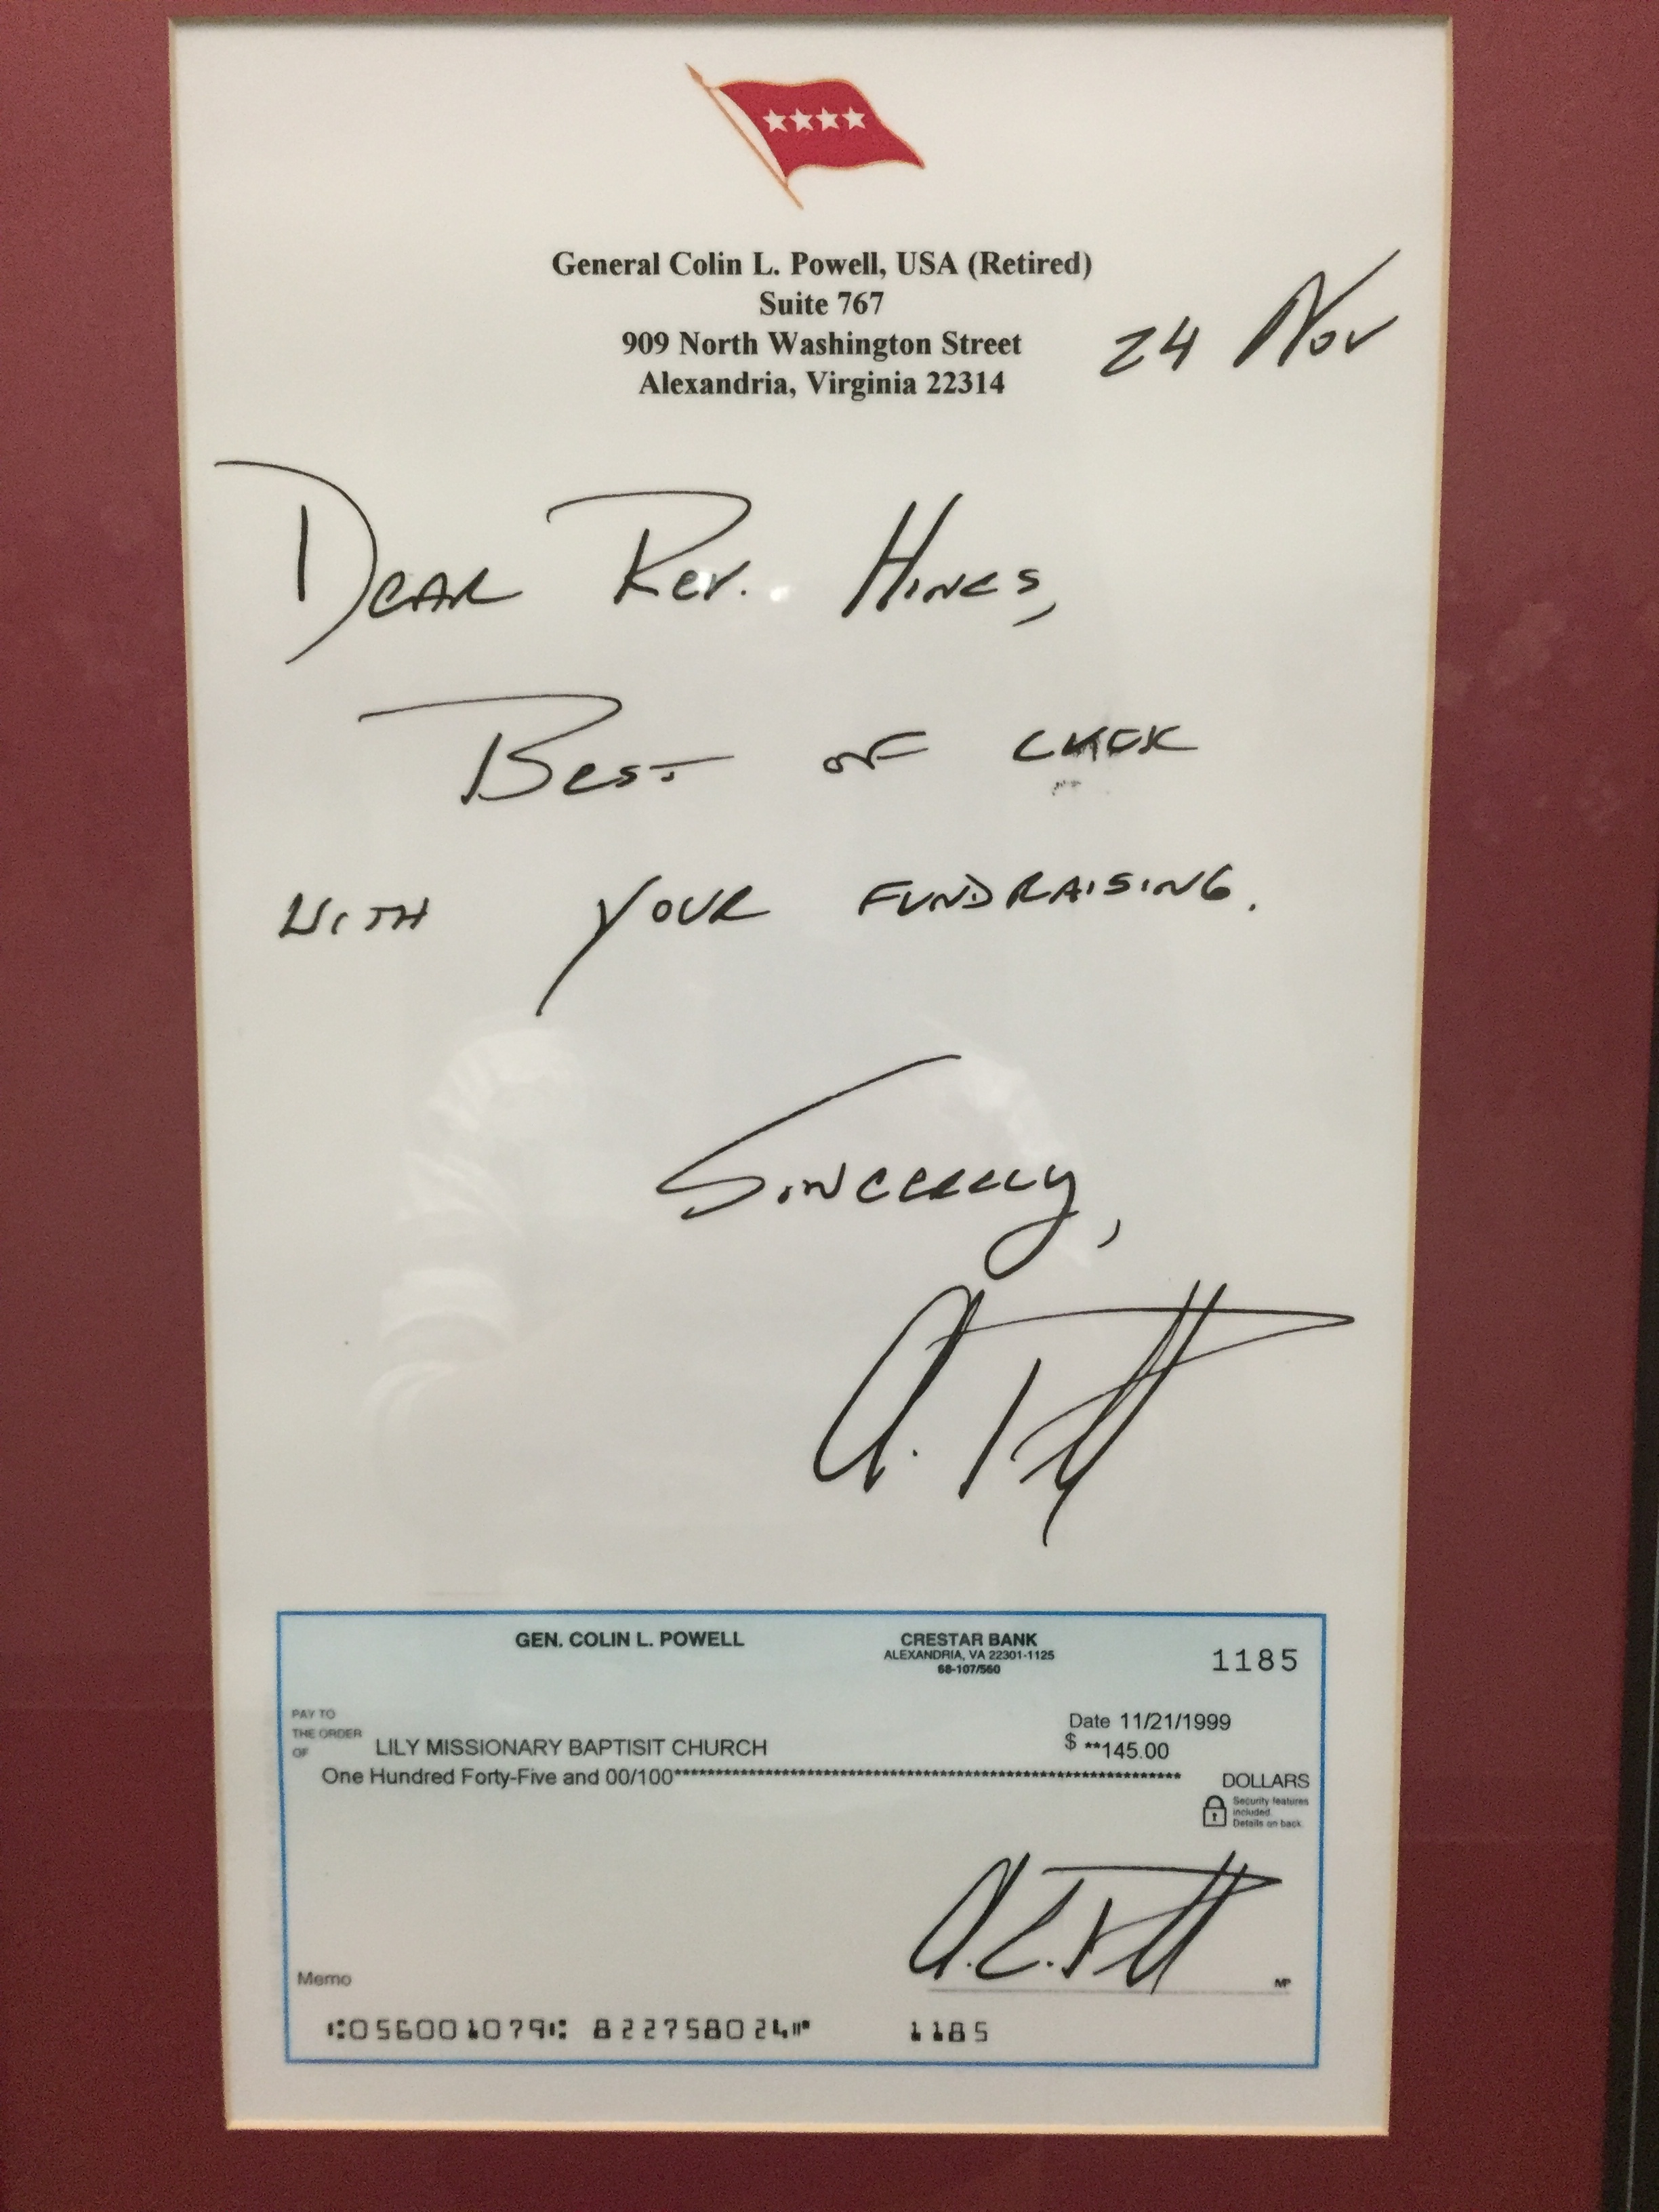 General Colin L. Powell, USA (Retired)
Suite 767
909 North Washington Street
Alexandria, Virginia 22314
24 Nov
Dear Rev. Hines,
Best of luck
with your fundraising.
Sincerely,
GEN. COLIN L. POWELL
CRESTAR BANK
ALEXANDRIA, VA 22301-1125
68-107/560
1185
PAY TO
THE ORDER
OF
LILY MISSIONARY BAPTISIT CHURCH
Date 11/21/1999
$ **145.00
One Hundred Forty-Five and 00/100******************************************************************************
DOLLARS
Security features
included.
Details on back.
Memo
MP
⑆056001079⑆ 822758024⑈ 1185